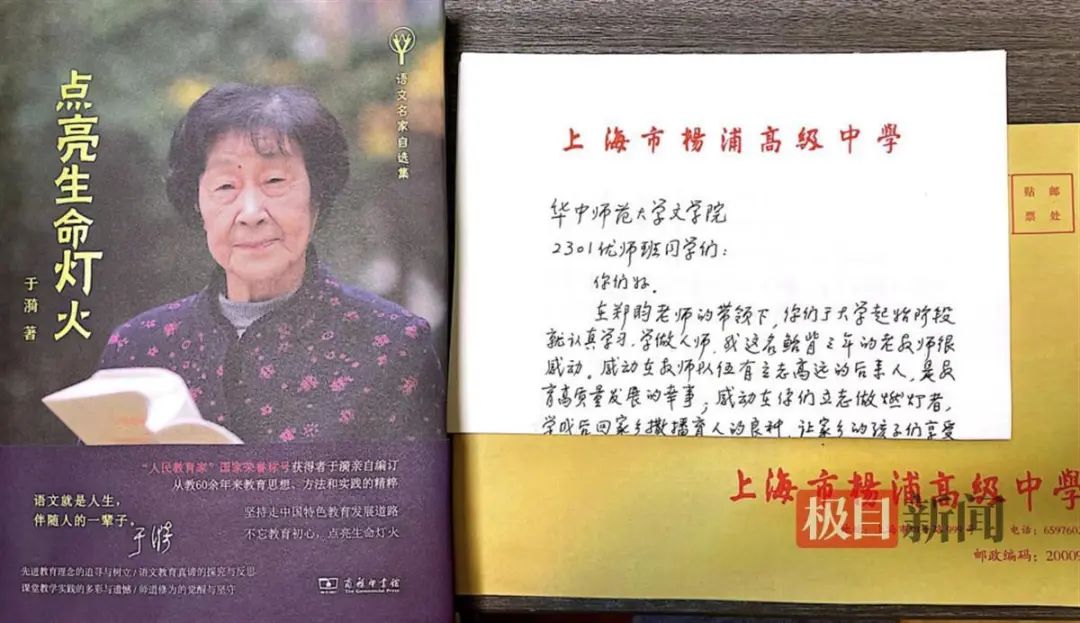 语文名家自选集
点亮生命灯火
于漪 著
“人民教育家”国家荣誉称号获得者于漪亲自编订
从教60余年来教育思想、方法和实践的精粹
语文就是人生，
伴随人的一辈子。
于漪
坚持走中国特色教育发展道路
不忘教育初心，点亮生命灯火
先进教育理念的追寻与树立/语文教育真谛的探究与反思
课堂教学实践的多彩与遗憾/师道修为的觉醒与坚守
商务印书馆
The Commercial Press
上海市楊浦高级中學
华中师范大学文学院
2301优师班同学们：
你们好。
在郑昀老师的带领下，你们于大学起始阶段
就认真学习，学做人师，我这名鲐背三年的老教师很
感动。感动在教师队伍有立志高远的后来人，是教
育高质量发展的幸事；感动在你们立志做燃灯者，
学成后回家乡撒播育人的良种，让家乡的孩子们享受
贴邮
票处
上海市楊浦高级中學
999号
电话：659760
邮政编码：20009
极目新闻